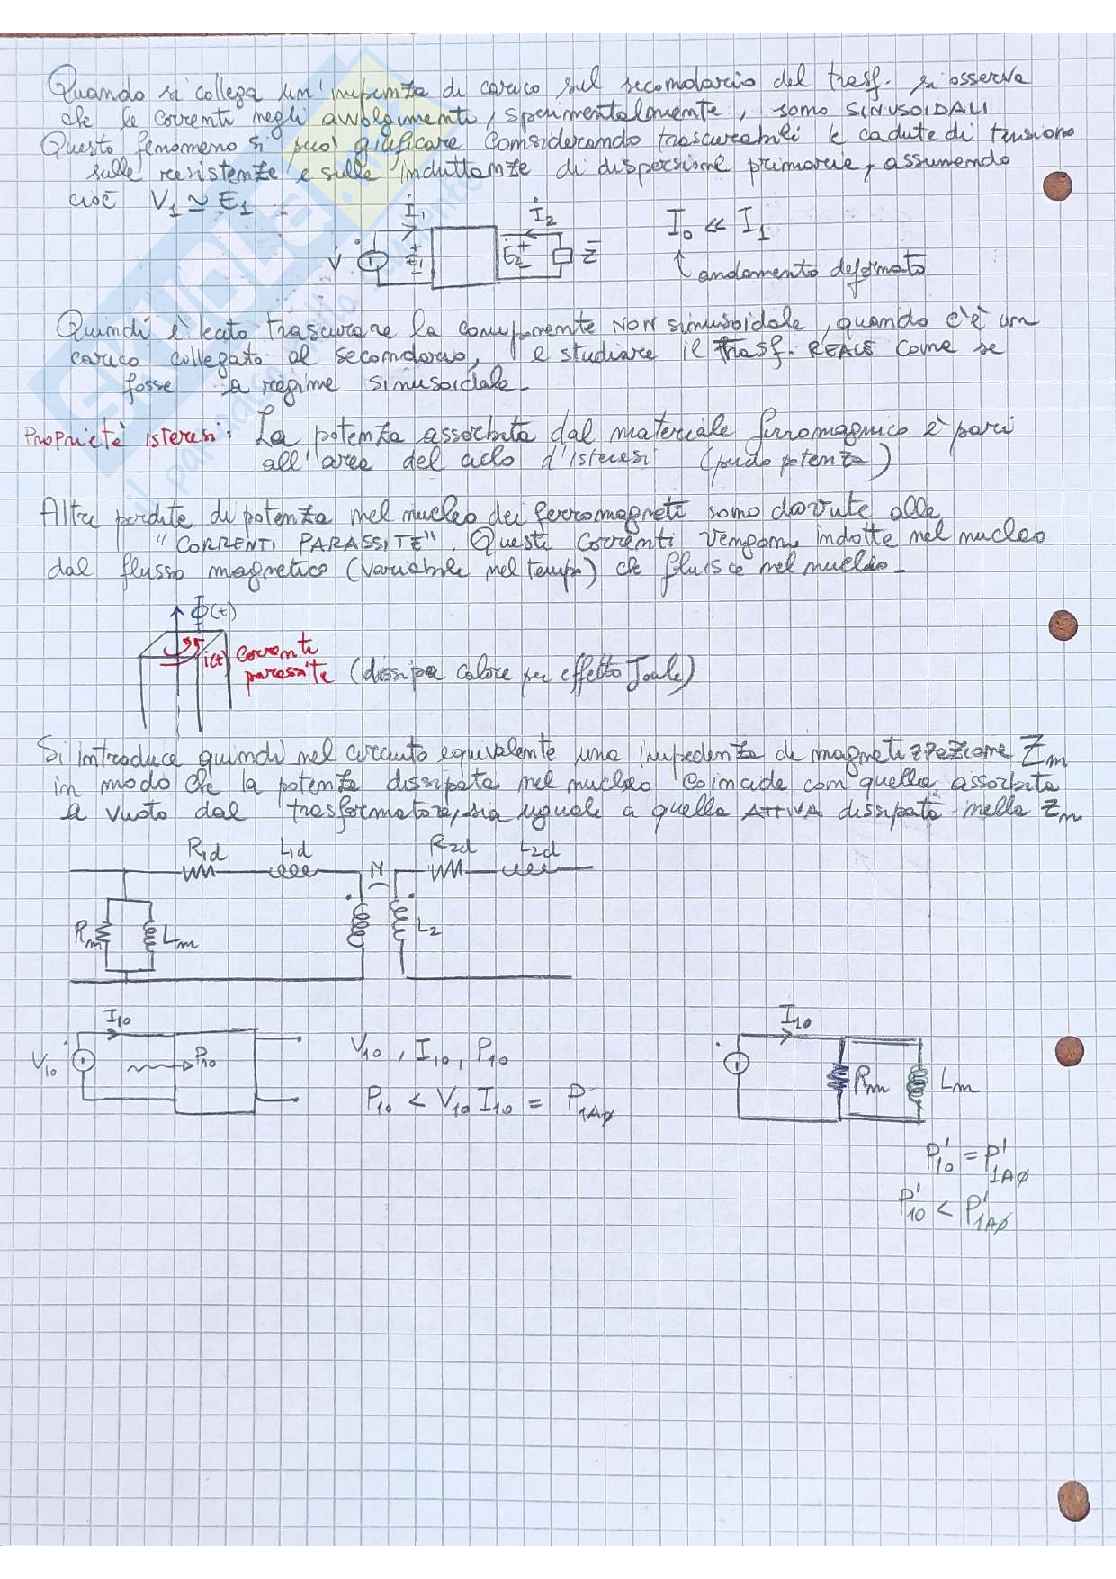 Quando si collega un' impedenza di carico sul secondario del trasf. si osserva
che le correnti negli avvolgimenti, sperimentalmente, sono SINUSOIDALI
Questo fenomeno si può giustificare considerando trascurabili le cadute di tensione
sulle resistenze e sulle induttanze di dispersione primarie, assumendo
cioè V1 ≃ E1
I1 I2
V E1 E2 Z
I0 << I1
andamento deformato
Quindi è lecito trascurare la componente NON sinusoidale, quando c'è un
carico collegato al secondario, e studiare il trasf. REALE come se
fosse a regime sinusoidale.
Proprietà isteresi: La potenza assorbita dal materiale ferromagnico è pari
all'area del ciclo d'isteresi (perdo potenza)
Altre perdite di potenza nel nucleo dei ferromagneti sono dovute alle
"CORRENTI PARASSITE". Queste correnti vengono indotte nel nucleo
dal flusso magnetico (variabile nel tempo) che fluisce nel nucleo.
Φ(t)
i(t) corrente
parassita (dissipa calore per effetto Joule)
Si introduce quindi nel circuito equivalente una impedenza di magnetizzazione Zm
in modo che la potenza dissipata nel nucleo coincida con quella assorbita
a vuoto dal trasformatore, sia uguale a quella ATTIVA dissipata nella Zm
R1d L1d M R2d L2d
Rm Lm L2
I10
V10 P10
V10, I10, P10
P10 < V10 I10 = P1Aø
I10
Rm Lm
P'10 = P'1Aø
P'10 < P'1Aø